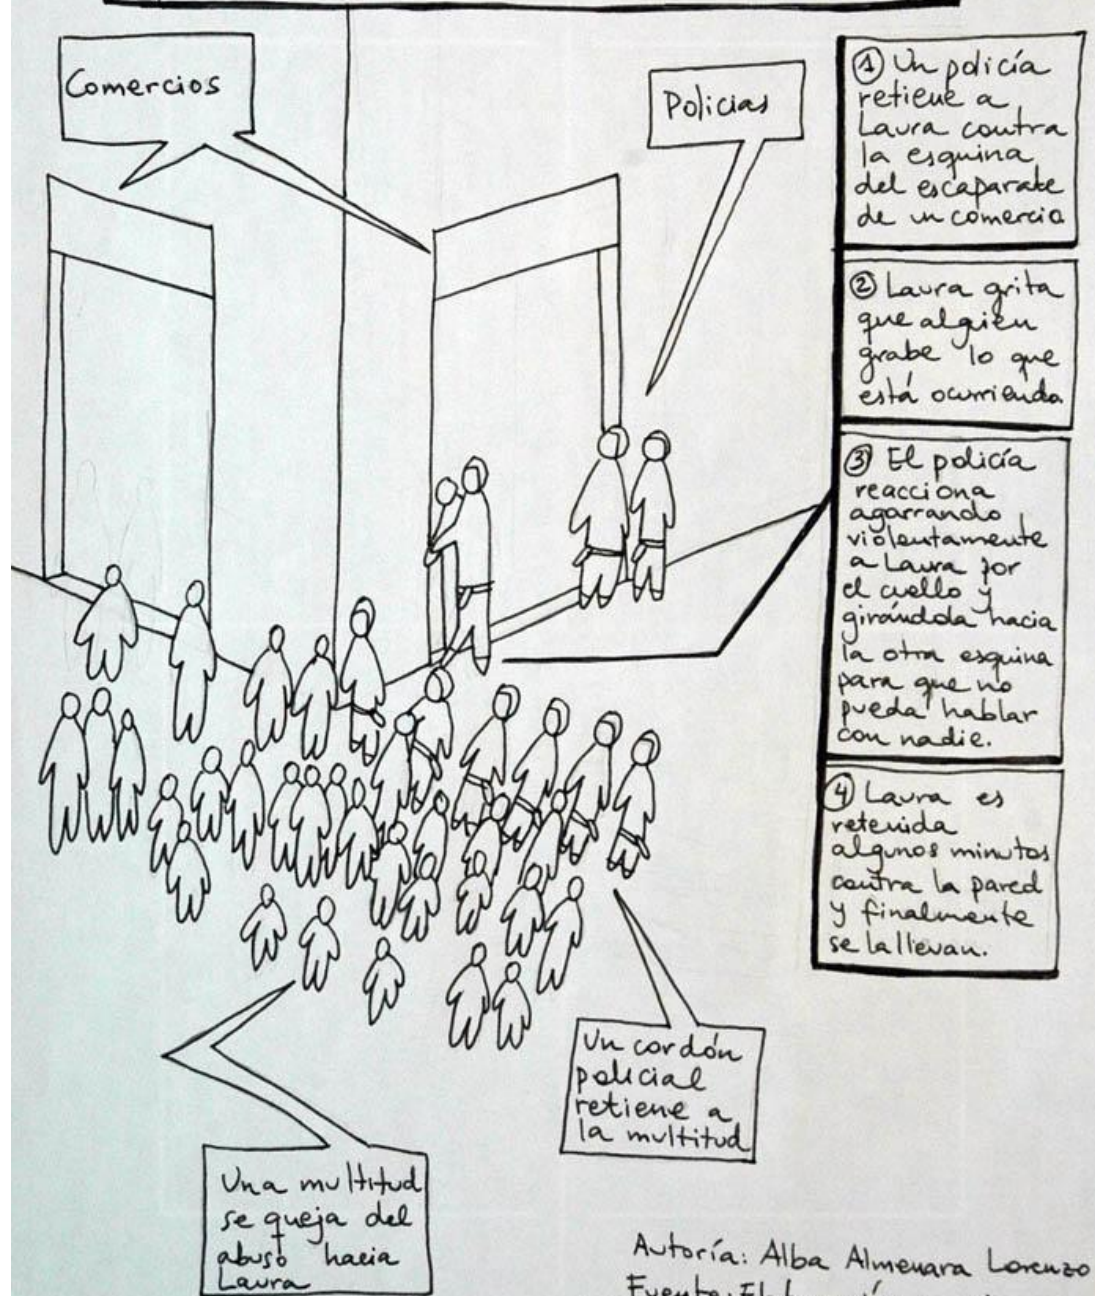 Comercios
Policias
① Un policía
retiene a
Laura contra
la esquina
del escaparate
de un comercio
② Laura grita
que alguien
grabe lo que
está ocurriendo
③ El policía
reacciona
agarrando
violentamente
a Laura por
el cuello y
girándola hacia
la otra esquina
para que no
pueda hablar
con nadie.
④ Laura es
retenida
algunos minutos
contra la pared
y finalmente
se la llevan.
Un cordón
policial
retiene a
la multitud
Una multitud
se queja del
abuso hacia
Laura
Autoría: Alba Almenara Lorenzo
Fuente: